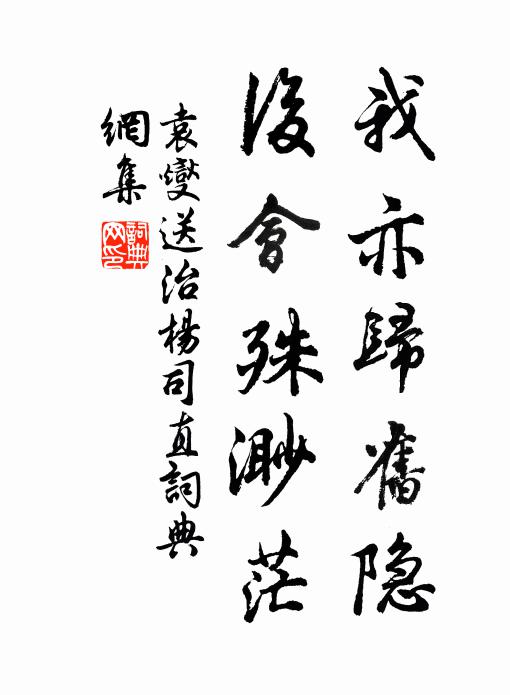 我亦歸舊隐
後會殊渺茫
袁燮送治楊司直詞典
網集
詞典網印